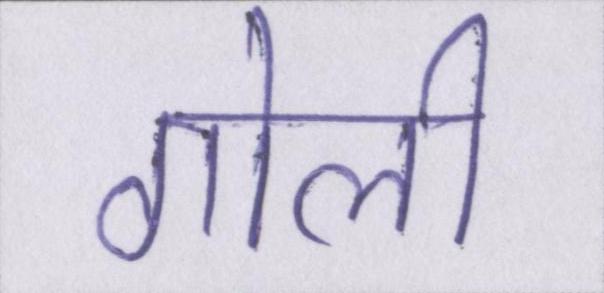 गोली